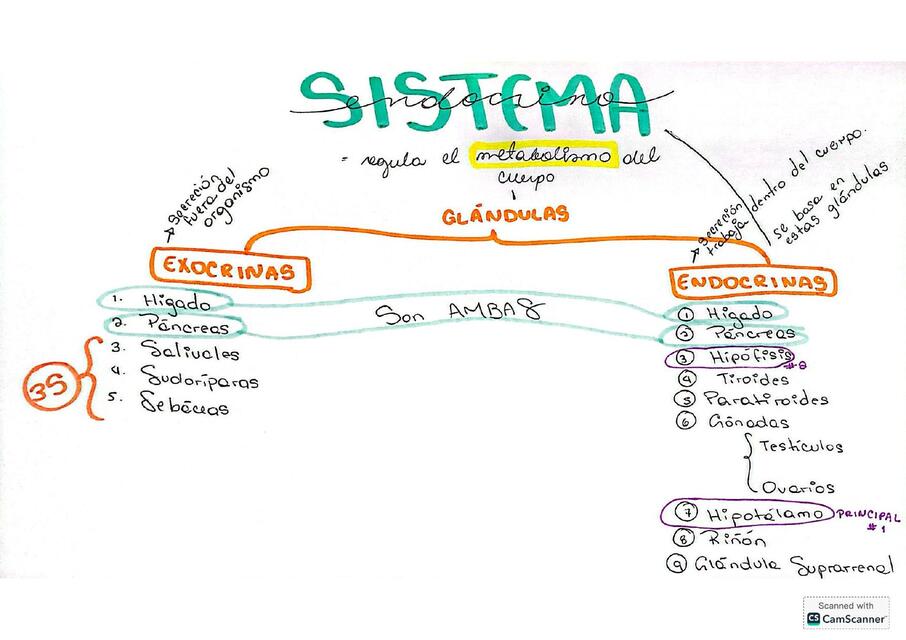 SISTEMA
endocrino
= regula el metabolismo del
cuerpo
GLÁNDULAS
↗ secreción
fuera del
organismo
EXOCRINAS
1. Hígado
2. Páncreas
3. Salivales
4. Sudoríparas
5. Sebáceas
3S
Son AMBAS
↗ secreción
trabaja dentro del cuerpo.
se basa en
estas glándulas
ENDOCRINAS
① Hígado
② Páncreas
③ Hipófisis
④ Tiroides
⑤ Paratiroides
⑥ Gónadas
Testículos
Ovarios
⑦ Hipotálamo PRINCIPAL
#1
⑧ Riñón
⑨ Glándula Suprarrenal
Scanned with
CS CamScanner